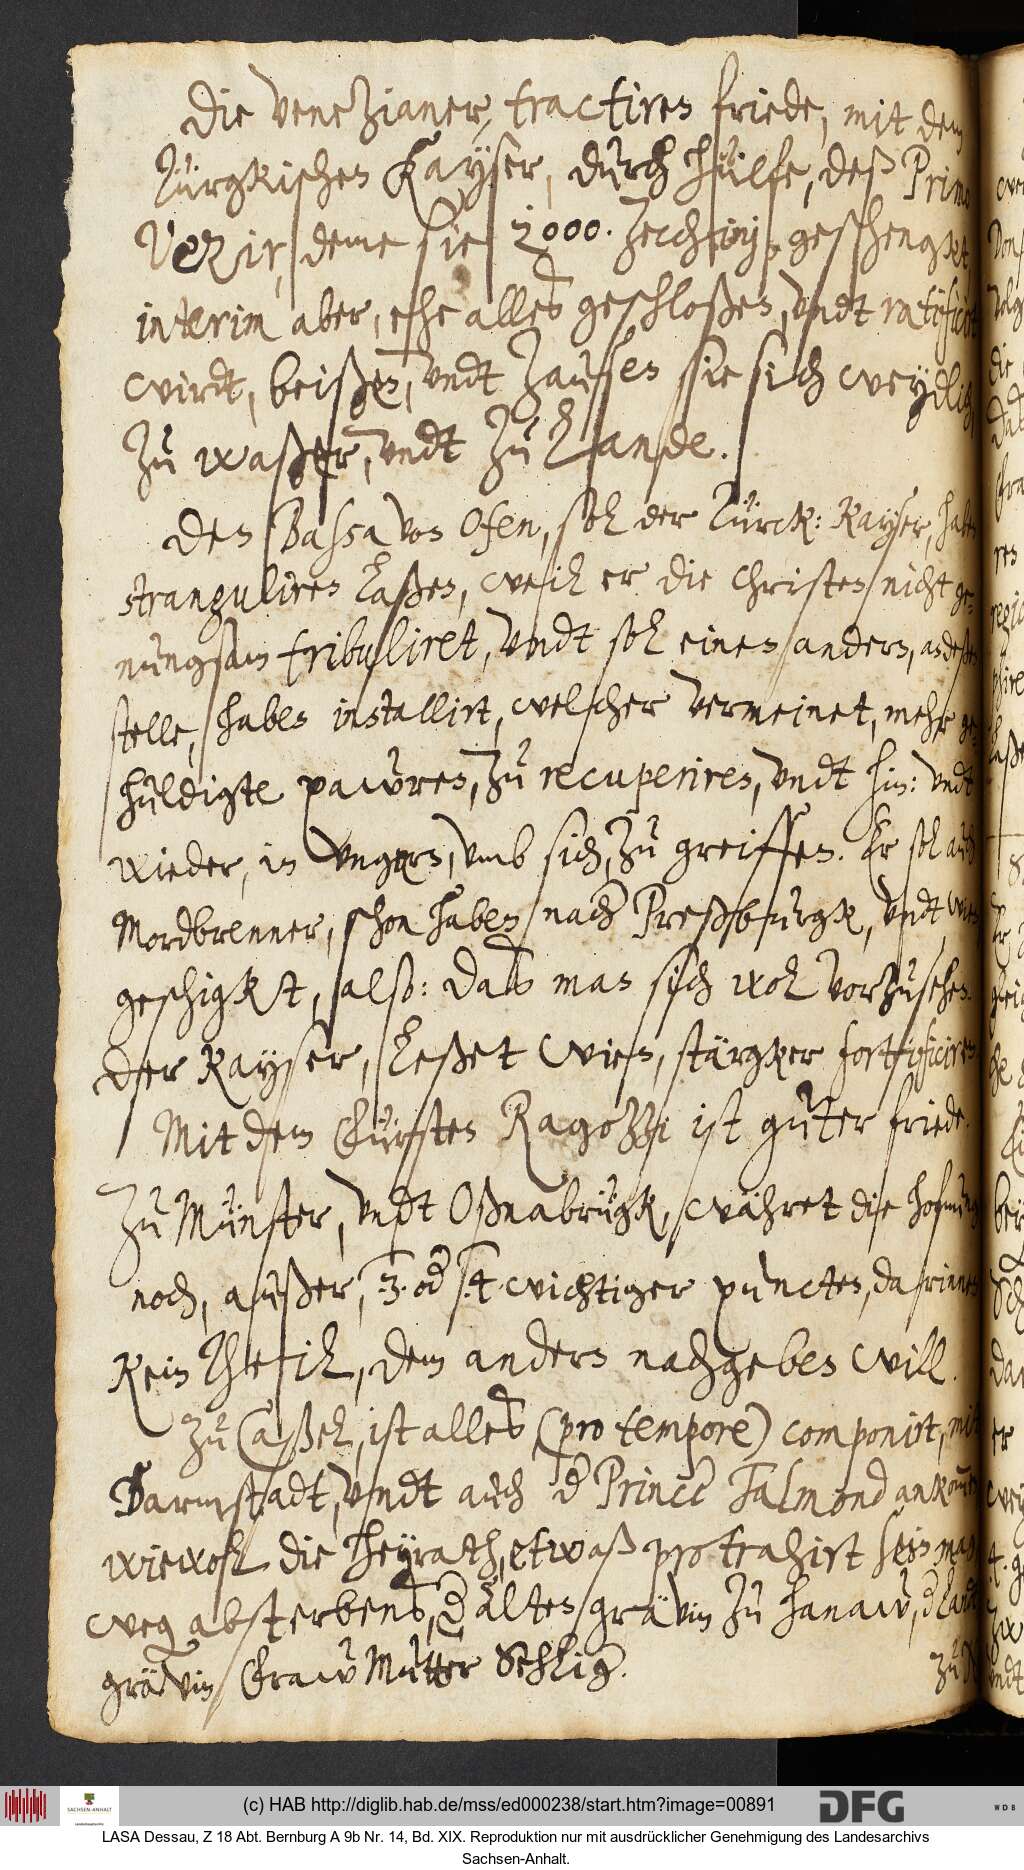 Die Venezianer, tractiren friede, mit dem
Türgkischen Kayser, durch hülfe, deß Primo
Vezir, deme sie 2000. Zecchinj, geschengkt,
interim aber, ehe alles geschloßen, vndt ratificirt
wirdt, beißen, vndt zausen sie sich weydlich
zu waßer, vndt zu Lande.
Den Bassa von Ofen, sol der Türck: Kayser, haben
stranguliren laßen, weil er die Christen nicht ge-
nungsam tribuliret, vndt sol einen andern, an deßen
stelle, haben installirt, welcher vermeinet, mehr ge-
huldigte pawren, zu recuperiren, vndt hin: vndt
wieder, in Vngern, vmb sich, zu greiffen. Er sol auch
Mordbrenner, schon haben nach Preßburgk, vndt Wien
geschigkt, also: daß man sich wol vorzusehen.
Der Kayser, leßet Wien, stärgker fortificiren
Mit dem Fürsten Ragozzi ist guter friede.
Zu Münster, vndt Oßnabrügk, währet die hofnung
noch, außer, 3. od 4. wichtiger puncten, darinnen
kein Theil, dem andern nachgeben will.
Zu Caßel, ist alles (pro tempore) componirt, mit
Darmstadt, vndt auch d Prince Talmond ankommen
wiewol die Heyrath, etwaß protrahirt sein mag
weg absterbens, d alten grävin zu Hanaw, d Landt
grävin Fraw Mutter Sehlig.
zu
(c) HAB http://diglib.hab.de/mss/ed000238/start.htm?image=00891
SACHSEN-ANHALT
DFG
WDB
LASA Dessau, Z 18 Abt. Bernburg A 9b Nr. 14, Bd. XIX. Reproduktion nur mit ausdrücklicher Genehmigung des Landesarchivs
Sachsen-Anhalt.